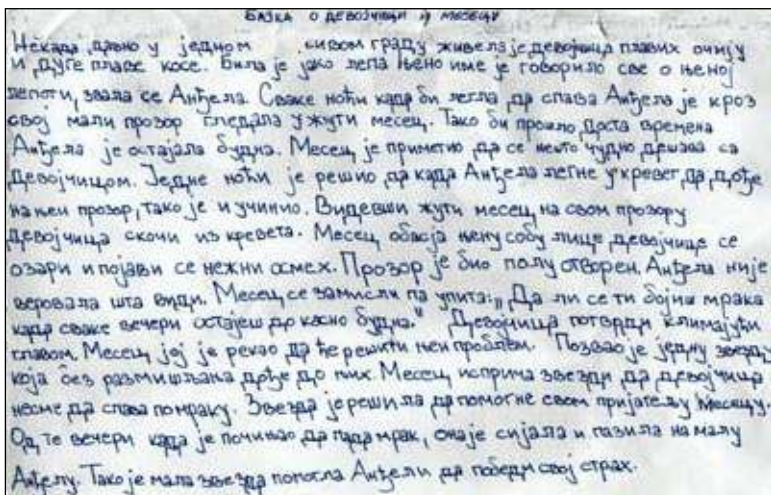 БАЈКА О ДЕВОЈЧИЦИ И МЕСЕЦУ
Некада давно у једном сивом граду живела је девојчица плавих очију
и дуге плаве косе. Била је јако лепа њено име је говорило све о њеној
лепоти, звала се Анђела. Сваке ноћи када би легла да спава Анђела је кроз
свој мали прозор гледала у жути месец. Тако би прошло доста времена
Анђела је остајала будна. Месец је приметио да се нешто чудно дешава са
девојчицом. Једне ноћи је решио да када Анђела легне у кревет да дође
на њен прозор, тако је и учинио. Видевши жути месец на свом прозору
девојчица скочи из кревета. Месец обасја њену собу лице девојчице се
озари и појави се нежни осмех. Прозор је био полу отворен. Анђела није
веровала шта види. Месец се замисли па упита: „Да ли се ти бојиш мрака
када сваке вечери остајеш до касно будна." Девојчица потврди климајући
главом. Месец јој је рекао да ће решити њен проблем. Позвао је једну звезду
која без размишљања дође до њих. Месец исприча звезди да девојчица
несме да спава по мраку. Звезда је решила да помогне свом пријатељу Месецу.
Од те вечери када је почињао да пада мрак, она је сијала и пазила на малу
Анђелу. Тако је мала звезда помогла Анђели да победи свој страх.